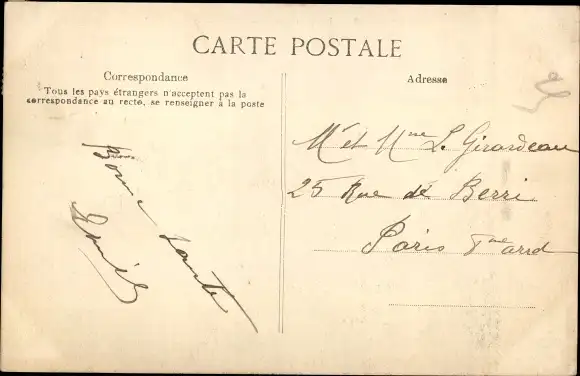 CARTE POSTALE
Correspondance
Tous les pays étrangers n'acceptent pas la
correspondance au recto, se renseigner à la poste
Adresse
Bonne santé
Mr et Mme L. Girardeau
25 Rue de Berri
Paris 8me arrd